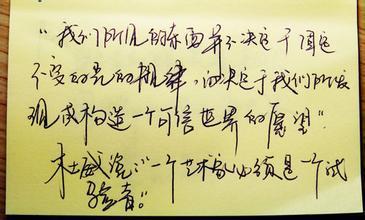 “我们所见的东西并不决定于固定
不变的光的规律，而决定于我们所发
现或构造一个可信世界的愿望”。
杜威说：“一个艺术家必须是一个试
验者。”